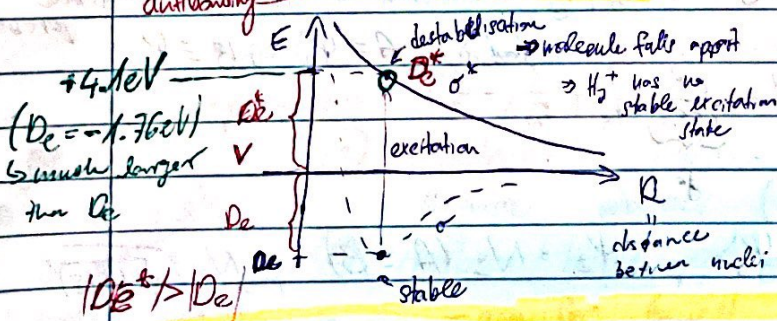 antibonding
E
destabilisation
+4.1eV
De*
σ*
→ molecule falls apart
⇒ H₂⁺ has no
stable excitation
state
(De = -1.76eV)
↳ much larger
than De
V
excitation
R
=
distance
between nuclei
De
σ
De
|De*|>|De|
stable